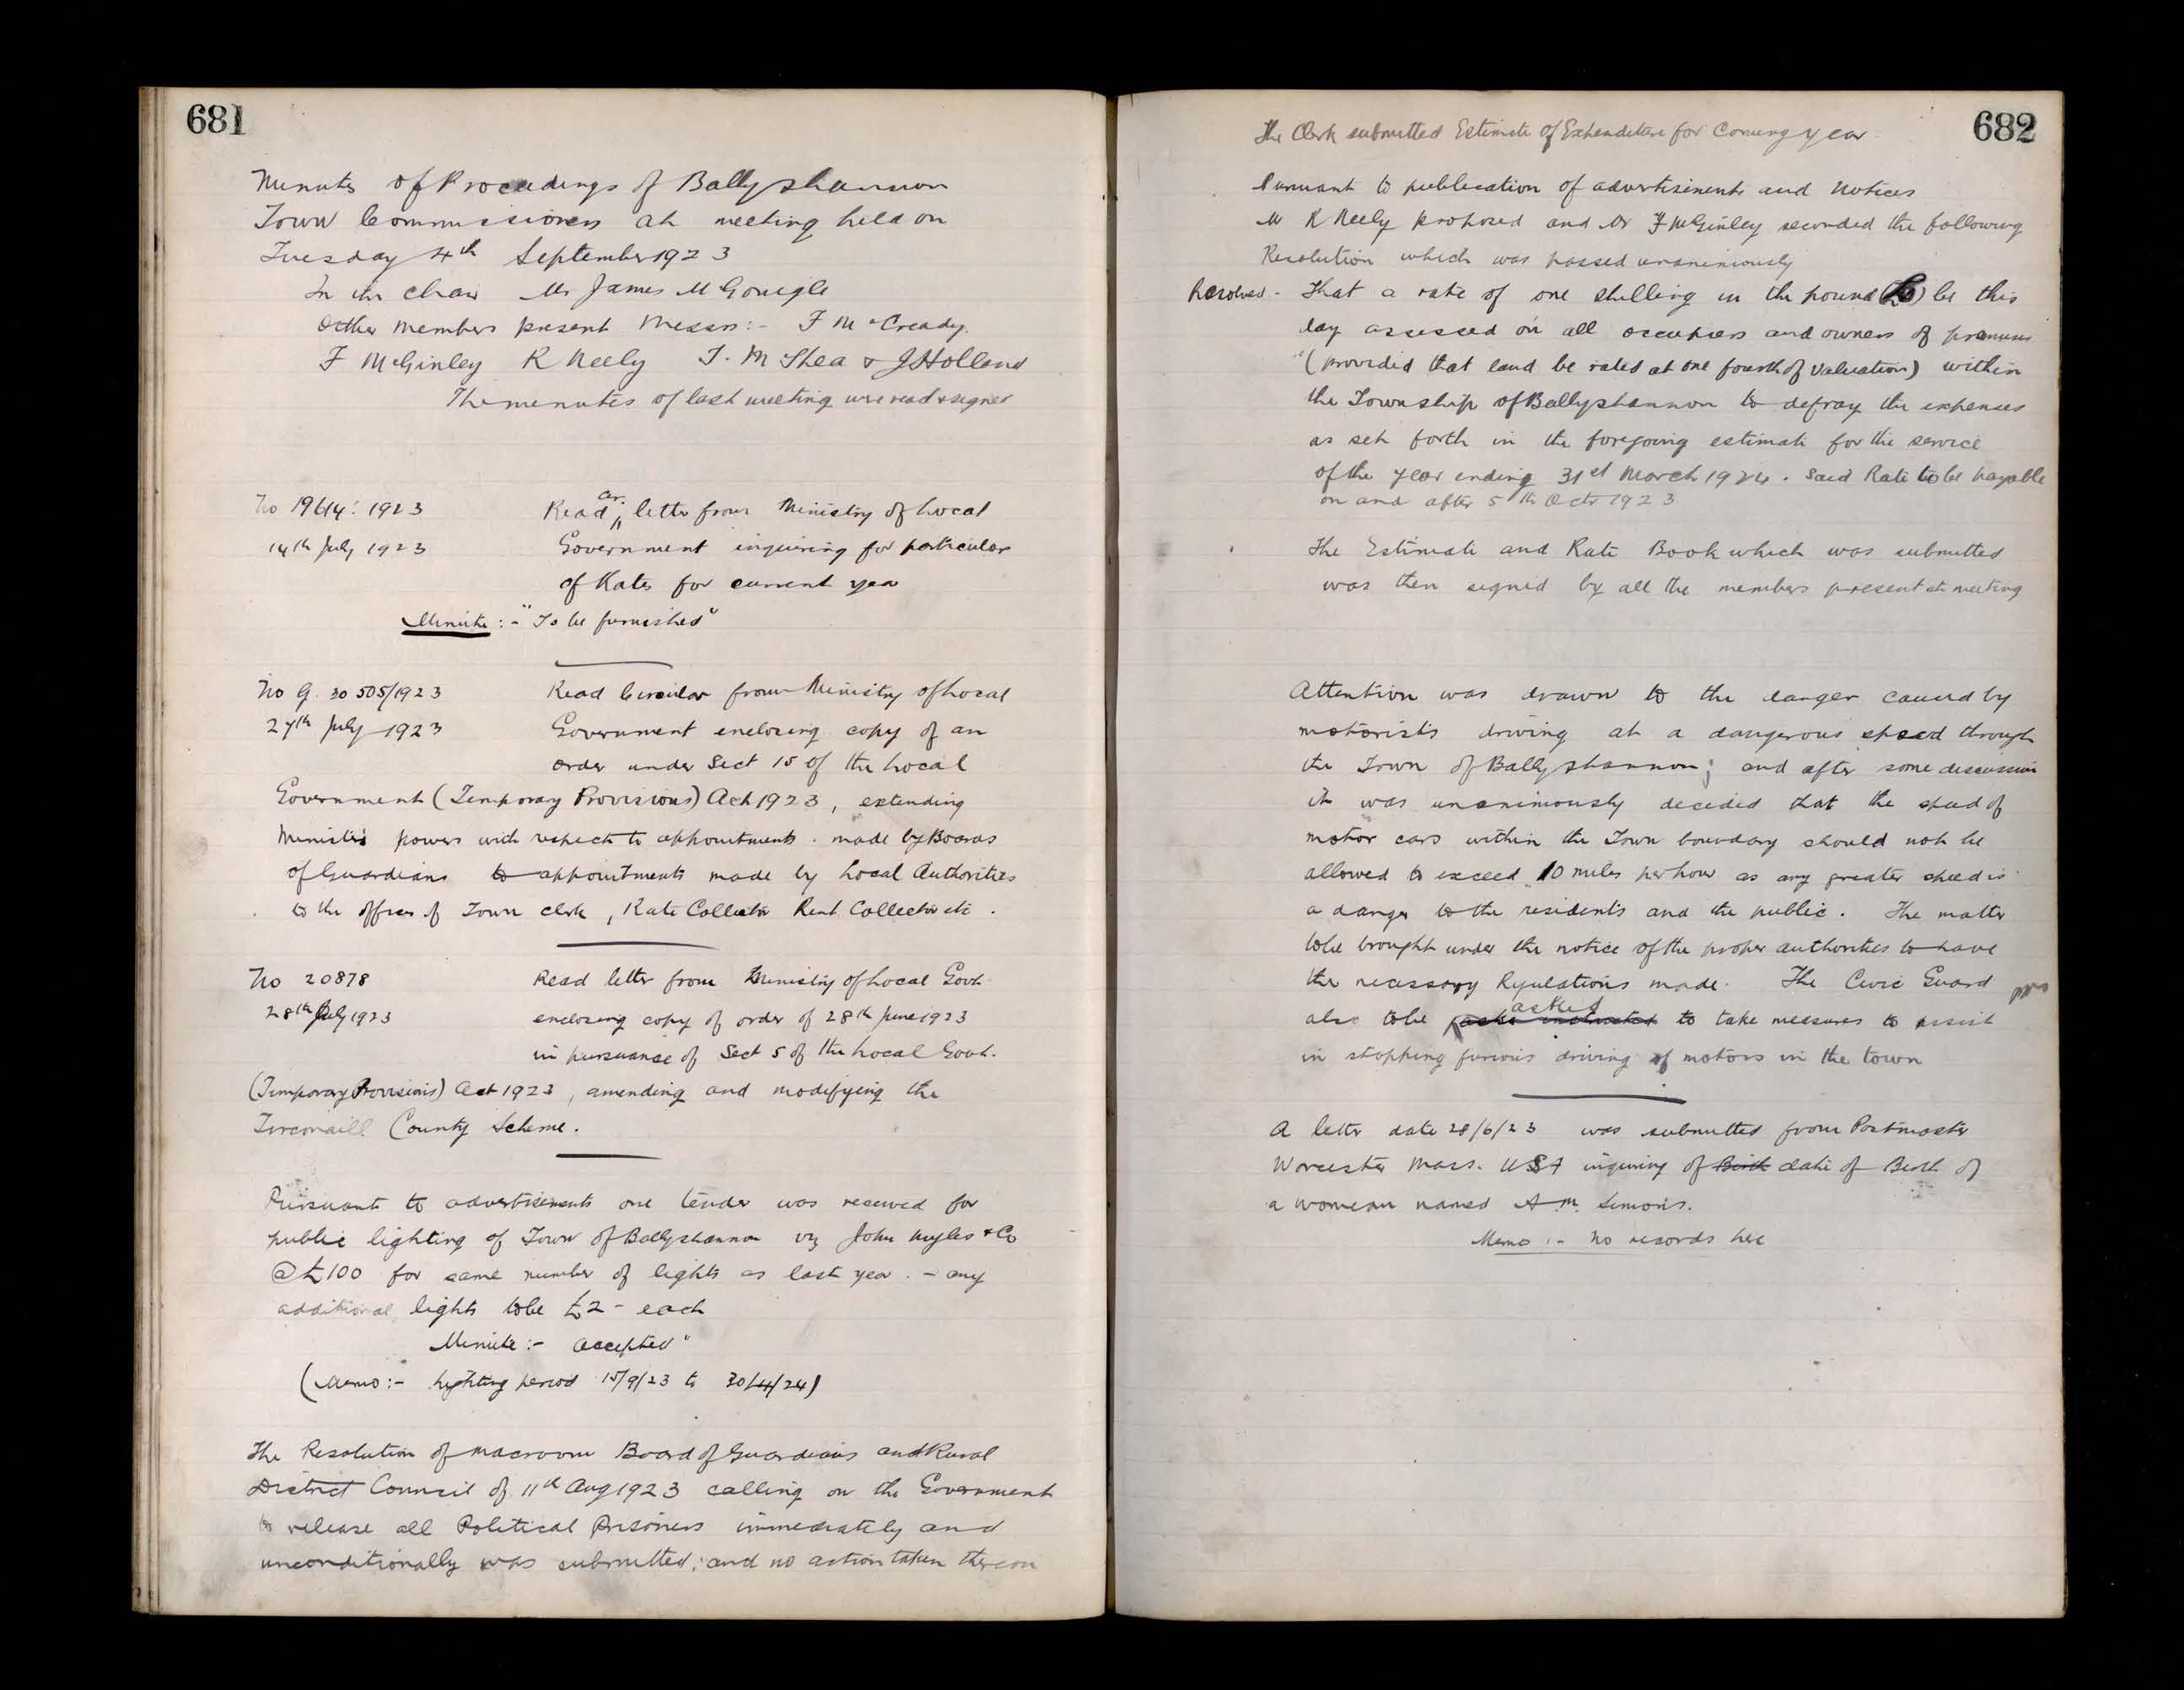 681
Minutes of Proceedings of Ballyshannon
Town Commissioners at meeting held on
Tuesday 4th September 1923
In the Chair Mr James McGonigle
Other members present Messrs:- F McCready.
F McGinley R Neely T. McShea & J Holland
The minutes of last meeting were read & signed
No 19614: 1923
14th July 1923
Read letter from Ministry of Local
Government inquiring for particulars
of Rates for current year
Minute:- "To be furnished"
No G. 30505/1923
27th July 1923
Read Circular from Ministry of Local
Government enclosing copy of an
order under Sect 15 of the Local
Government (Temporary Provisions) Act 1923, extending
Minister's powers with respect to appointments made by Boards
of Guardians to appointments made by Local Authorities
to the offices of Town Clerk, Rate Collector Rent Collector etc.
No 20878
28th July 1923
Read letter from Ministry of Local Govt.
enclosing copy of order of 28th June 1923
in pursuance of Sect 5 of the Local Govt.
(Temporary Provisions) Act 1923, amending and modifying the
Tirconaill County Scheme.
Pursuant to advertisements one tender was received for
public lighting of Town of Ballyshannon viz John Myles & Co
@ £100 for same number of lights as last year. - any
additional lights to be £2- each
Minute:- accepted"
(Memo:- lighting period 15/9/23 to 30/4/24)
The Resolution of Macroom Board of Guardians and Rural
District Council of 11th Aug 1923 calling on the Government
to release all Political Prisoners immediately and
unconditionally was submitted; and no action taken thereon
682
The Clerk submitted Estimate of Expenditure for Coming year
Pursuant to publication of advertisements and notices
Mr R Neely proposed and Mr F McGinley seconded the following
Resolution which was passed unanimously
Resolved- That a rate of one shilling in the pound (£) be this
day assessed on all occupiers and owners of premises
"(provided that land be rated at one fourth of valuation) within
the Township of Ballyshannon to defray the expenses
as set forth in the foregoing estimate for the service
of the year ending 31st March 1924. Said Rate to be payable
on and after 5th Octr 1923
The Estimate and Rate Book which was submitted
was then signed by all the members present at meeting
Attention was drawn to the danger caused by
motorists driving at a dangerous speed through
the Town of Ballyshannon; and after some discussion
it was unanimously decided that the speed of
motor cars within the Town boundary should not be
allowed to exceed 10 miles per hour as any greater speed is
a danger to the residents and the public. The matter
to be brought under the notice of the proper authorities to have
the necessary Regulations made. The Civic Guard
also to be asked to take measures to assist
in stopping furious driving of motors in the town
A letter date 28/6/23 was submitted from Postmaster
Worcester Mass. USA inquiring of Birth date of Birth of
a woman named A. M. Simons.
Memo:- no records here